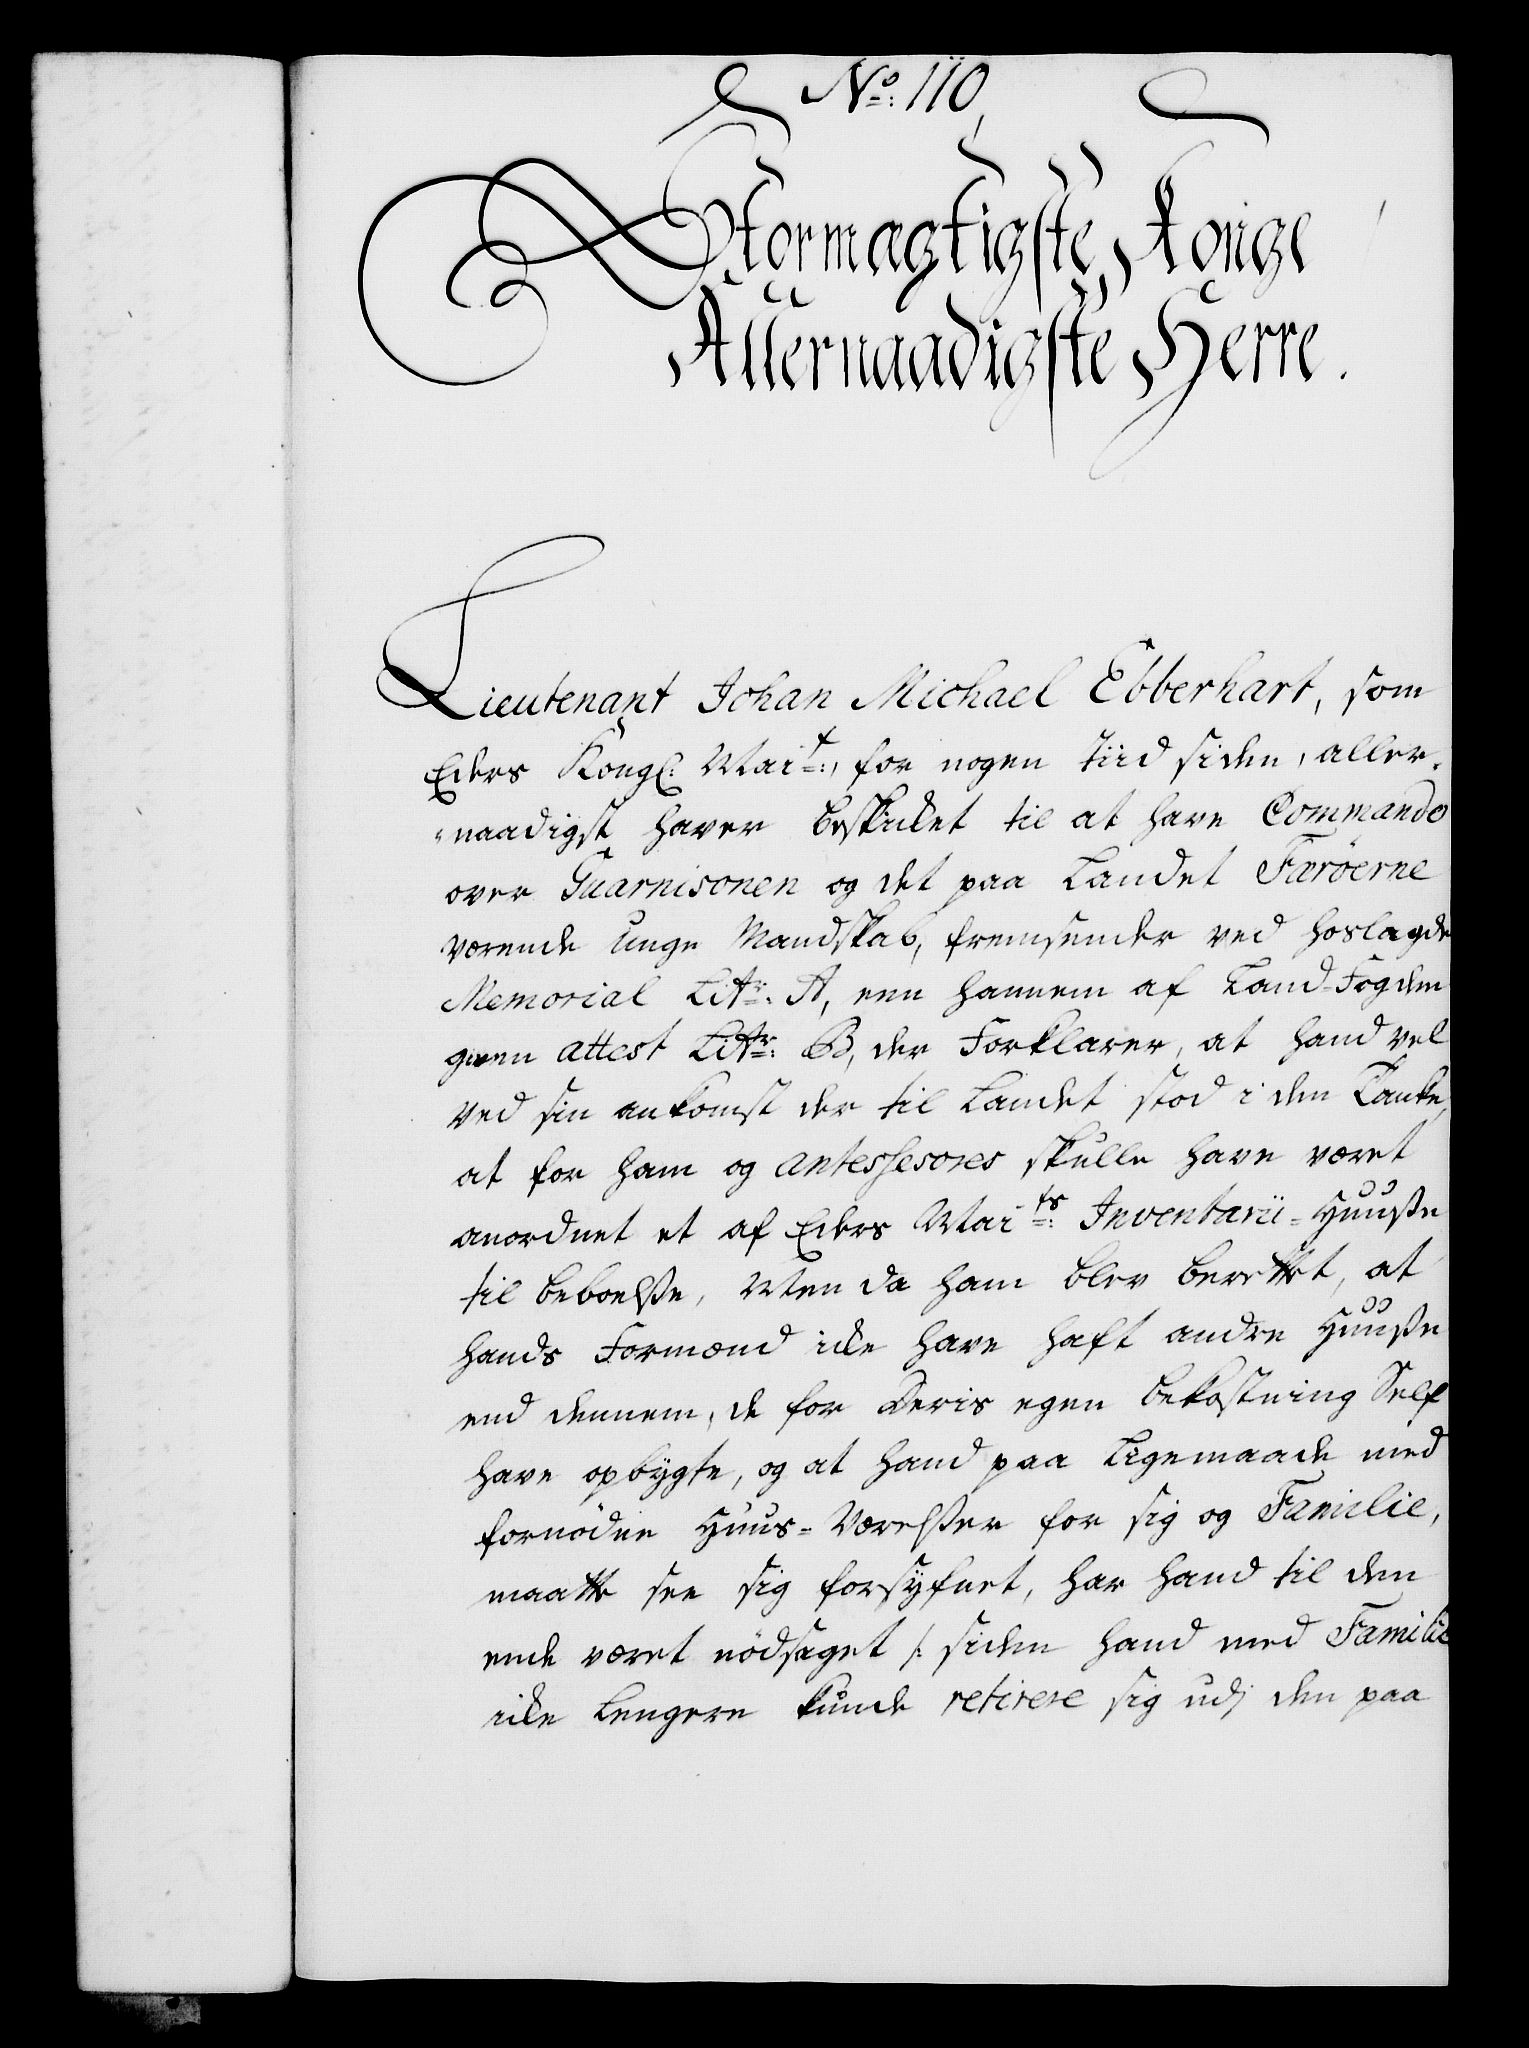 No: 110,
Stormægtigste Konge
Allernaadigste Herre.
Lieutenant Johan Michael Ebberhart, som
Eders Kongl: Mait:, for nogen tiid siden, aller-
-naadigst haver beskicket til at have Commando
over Guarnisonen og det paa Landet Færöerne
værende unge Mandskab, fremsender ved hoslagde
Memorial Litr: A, een hannem af Land-Fogden
given attest Litr: B, der Forklarer, at hand vel
ved sin ankomst der til Landet stod i den Tanke,
at for ham og antessesores skulle have været
anordnet et af Eders Maits: Inventarii-Huuße
til beboelße, Men da ham blev berettet, at
hands Formænd icke have haft andre Huuße
end dennem, de for Deris egen bekostning Self
have opbygte, og at hand paa Ligemaade med
fornödne Huus-Værelßer for sig og Familie,
maatte see sig forsyfnet, har hand til den
ende været nödsaget /: siden hand med Familie
icke Lengere kunde retirere sig udj den paa